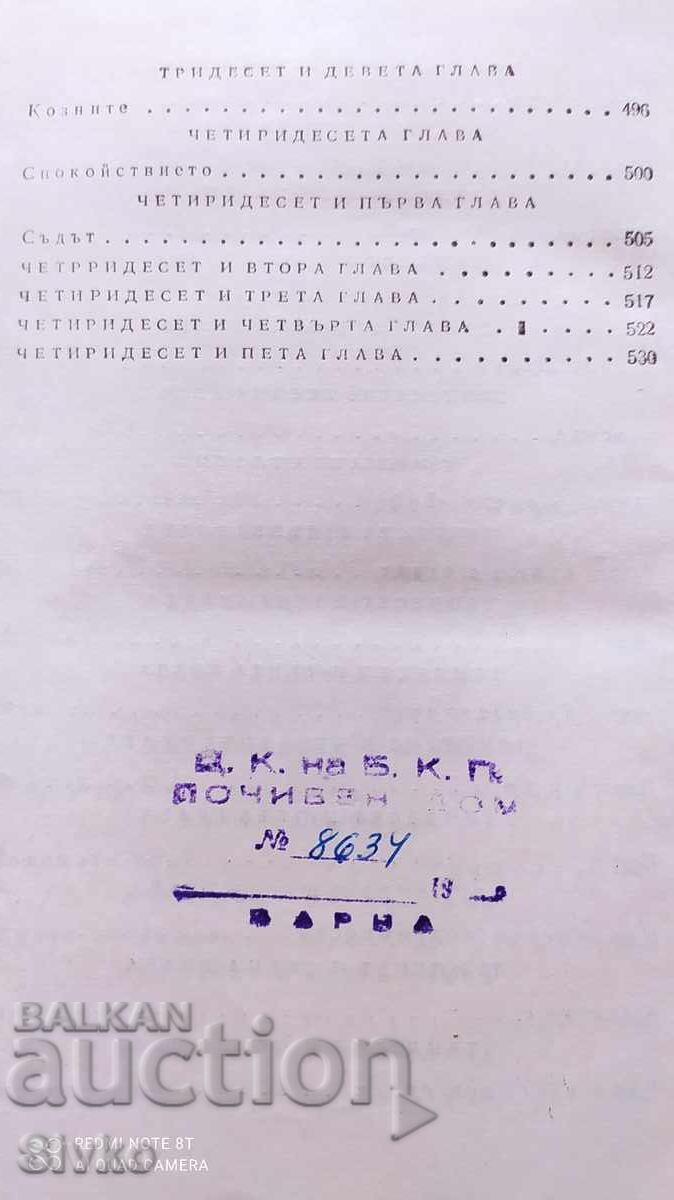 ТРИДЕСЕТ И ДЕВЕТА ГЛАВА
Козните . . . . . . . . . . . . . . . . . . . . . . . . . . . 496
ЧЕТИРИДЕСЕТА ГЛАВА
Спокойствието . . . . . . . . . . . . . . . . . . . . . . 500
ЧЕТИРИДЕСЕТ И ПЪРВА ГЛАВА
Съдът . . . . . . . . . . . . . . . . . . . . . . . . . . . . . 505
ЧЕТРРИДЕСЕТ И ВТОРА ГЛАВА . . . . . . . . . 512
ЧЕТИРИДЕСЕТ И ТРЕТА ГЛАВА . . . . . . . . . 517
ЧЕТИРИДЕСЕТ И ЧЕТВЪРТА ГЛАВА . . . . . . 522
ЧЕТИРИДЕСЕТ И ПЕТА ГЛАВА . . . . . . . . . . 530
Ц. К. на Б. К. П.
ПОЧИВЕН ДОМ
№ 8634
19
ВАРНА
BALKAN
auction
REDMI NOTE 8T
AI QUAD CAMERA
Sivko